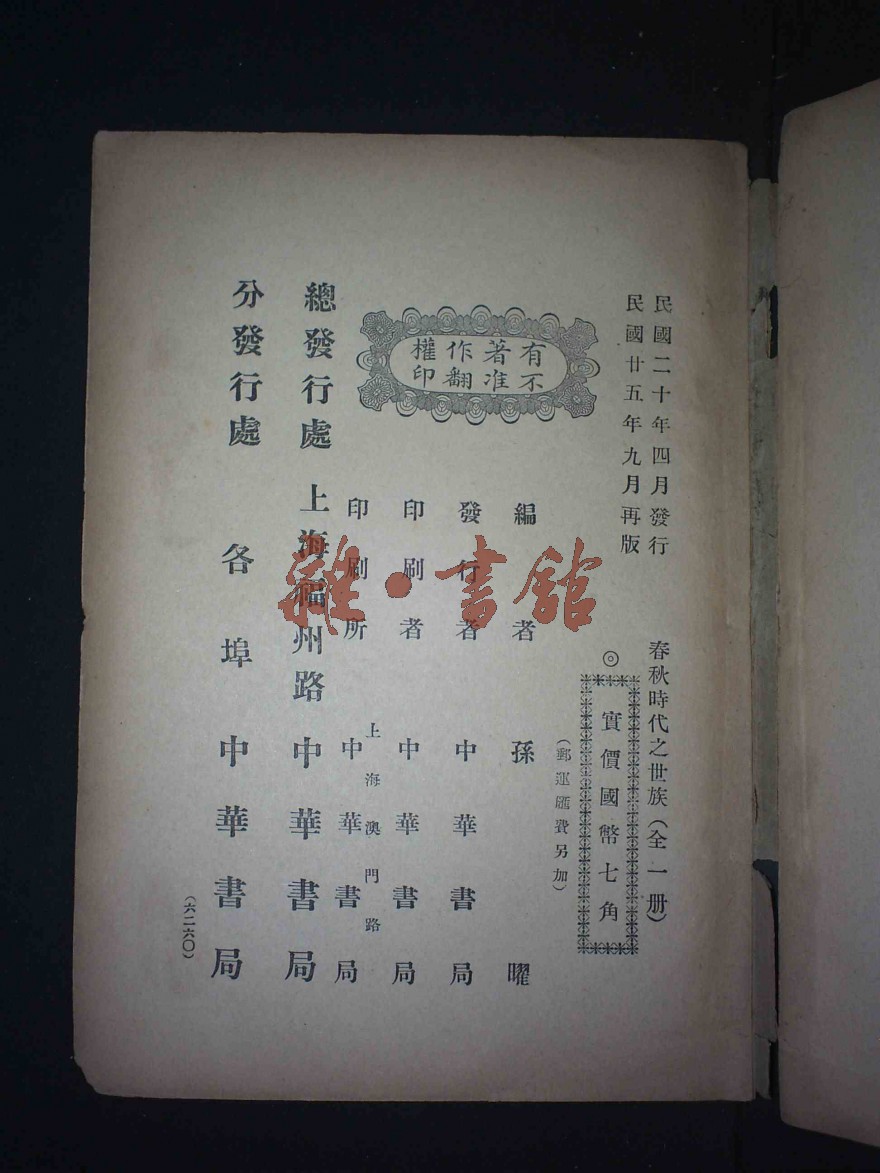 民國二十年四月發行
民國廿五年九月再版
春秋時代之世族（全一册）
◎
實價國幣七角
（郵運匯費另加）
有著作權
不准翻印
編者 孫曜
發行者 中華書局
印刷者 中華書局
上海澳門路
印刷所 中華書局
總發行處 上海福州路 中華書局
分發行處 各埠 中華書局
（六二六〇）
雜·書館